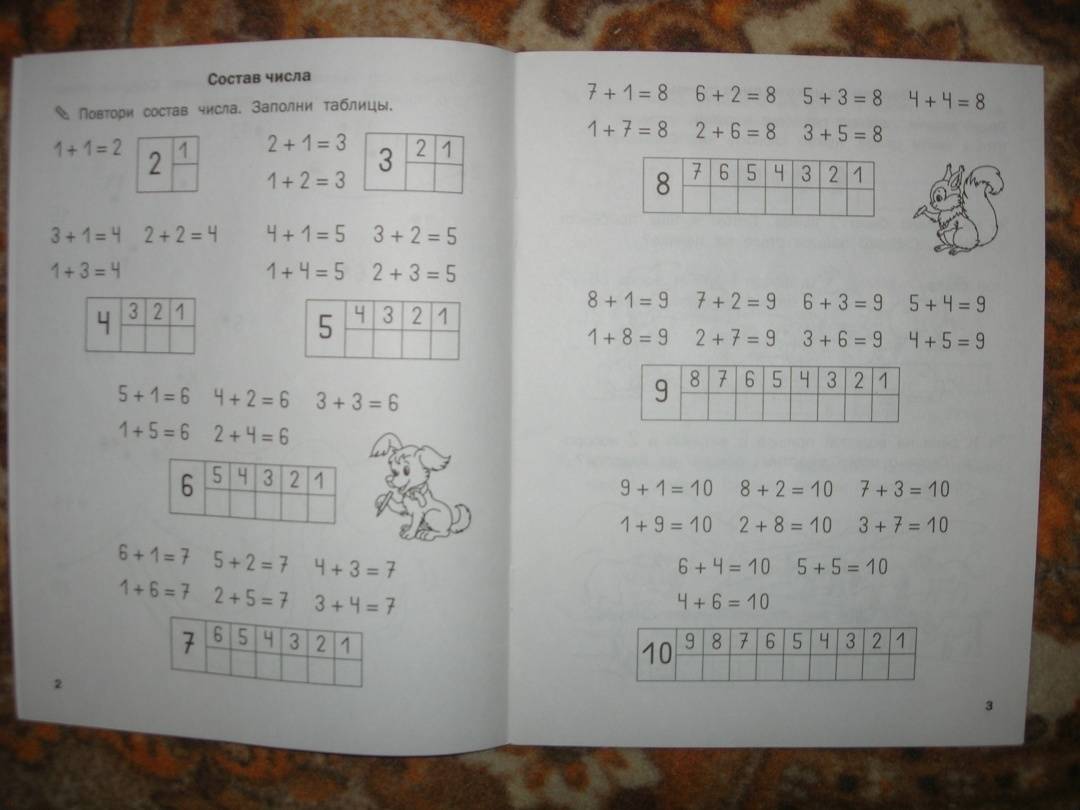 Состав числа
Повтори состав числа. Заполни таблицы.
1 + 1 = 2
2 1
2 + 1 = 3
1 + 2 = 3
3 2 1
3 + 1 = 4 2 + 2 = 4
1 + 3 = 4
4 3 2 1
4 + 1 = 5 3 + 2 = 5
1 + 4 = 5 2 + 3 = 5
5 4 3 2 1
5 + 1 = 6 4 + 2 = 6 3 + 3 = 6
1 + 5 = 6 2 + 4 = 6
6 5 4 3 2 1
6 + 1 = 7 5 + 2 = 7 4 + 3 = 7
1 + 6 = 7 2 + 5 = 7 3 + 4 = 7
7 6 5 4 3 2 1
2
7 + 1 = 8 6 + 2 = 8 5 + 3 = 8 4 + 4 = 8
1 + 7 = 8 2 + 6 = 8 3 + 5 = 8
8 7 6 5 4 3 2 1
8 + 1 = 9 7 + 2 = 9 6 + 3 = 9 5 + 4 = 9
1 + 8 = 9 2 + 7 = 9 3 + 6 = 9 4 + 5 = 9
9 8 7 6 5 4 3 2 1
9 + 1 = 10 8 + 2 = 10 7 + 3 = 10
1 + 9 = 10 2 + 8 = 10 3 + 7 = 10
6 + 4 = 10 5 + 5 = 10
4 + 6 = 10
10 9 8 7 6 5 4 3 2 1
3